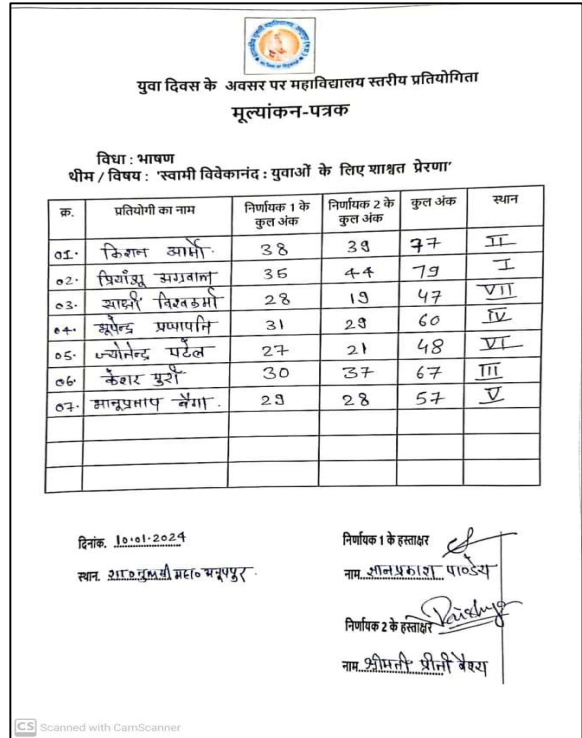 युवा दिवस के अवसर पर महाविद्यालय स्तरीय प्रतियोगिता
मूल्यांकन-पत्रक
विधा : भाषण
थीम / विषय : 'स्वामी विवेकानंद : युवाओं के लिए शाश्वत प्रेरणा'
क्र. प्रतियोगी का नाम निर्णायक 1 के कुल अंक निर्णायक 2 के कुल अंक कुल अंक स्थान
01. किशन आर्मो. 38 39 77 II
02. प्रियाँशू अग्रवाल 35 44 79 I
03. साक्षी विश्वकर्मा 28 19 47 VII
04. भूपेन्द्र प्रजापति 31 29 60 IV
05. ज्योनेन्द्र पटेल 27 21 48 VI
06. केशर पुरी 30 37 67 III
07. भानूप्रताप बैगा. 29 28 57 V
दिनांक. 10.01.2024
निर्णायक 1 के हस्ताक्षर
स्थान. शा० तुलसी महा० अनूपपुर.
नाम. ज्ञानप्रकाश पाण्डेय
निर्णायक 2 के हस्ताक्षर
नाम. श्रीमती प्रीती वैश्य
CS Scanned with CamScanner